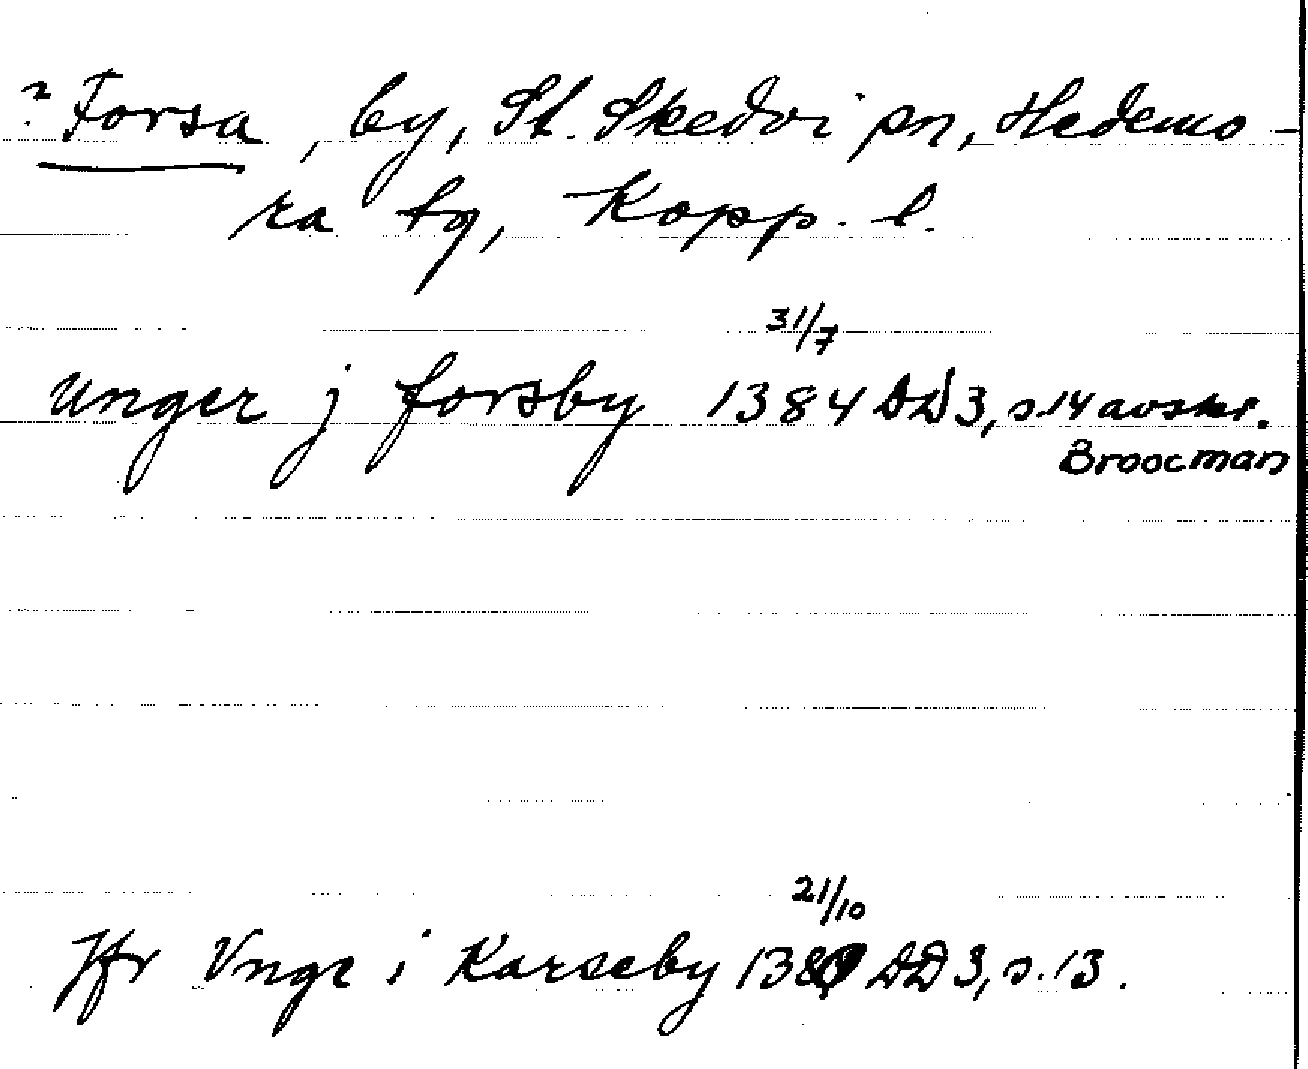 ? Forsa, by, St. Skedvi sn, Hedemo-
ra tg, Kopp. l.
31/7
unger j forsby 1384 DD3, s.14 avskr.
Broocman
21/10
Jfr Vnge i Karseby DD 3, s.13.